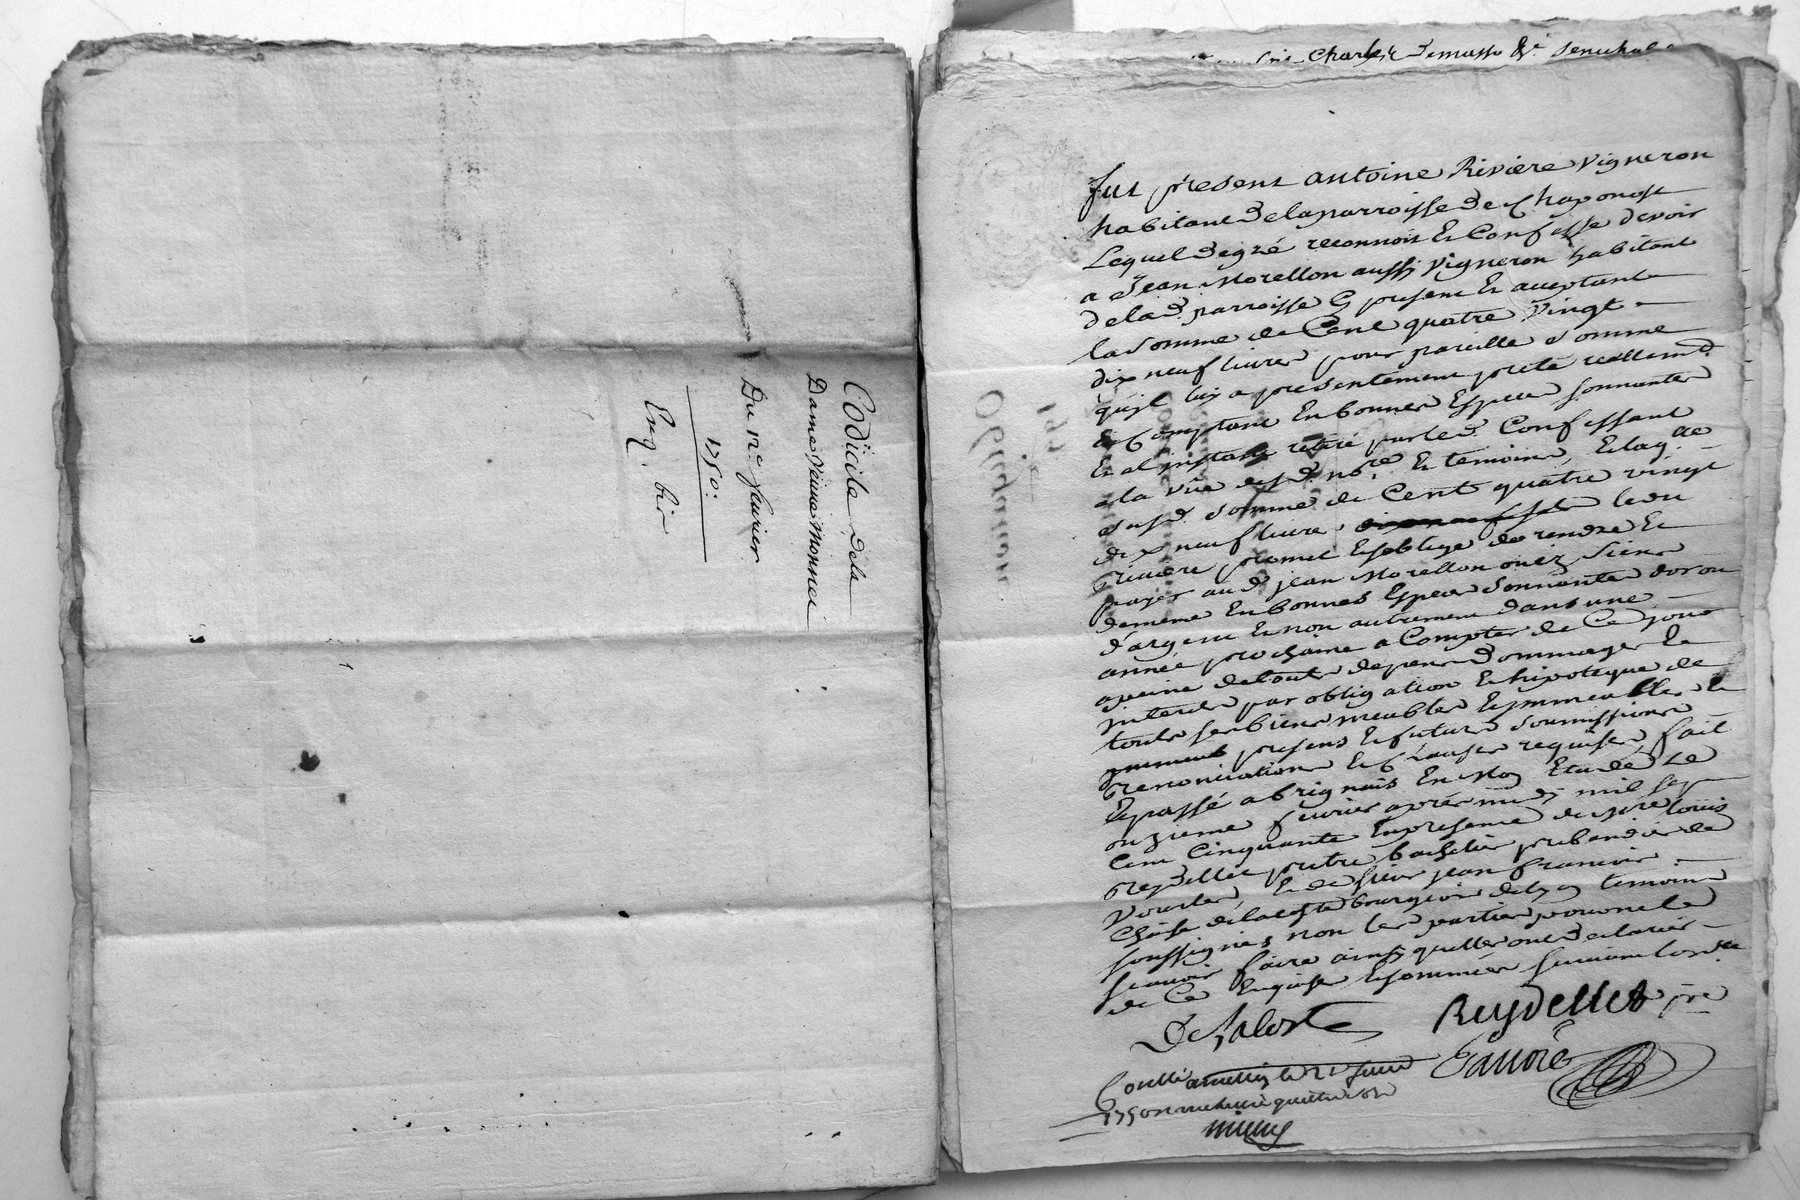 Codicile dela
Dame Veuve Monnet
Du 12e fevrier
1750:
Exq. bis
Charles Demasso
fut présent antoine Rivière vigneron
habitant de la parroisse de Chaponost
Lequel de gré reconnois Et Confesse devoir
a Jean Morellon aussi vigneron habitant
de lad. parroisse Cy present Et acceptant
la somme de Cent quatre vingt
dix neuf livres pour pareille somme
qu'il luy a presentement preté reellemt
Et Comptant En bonnes Espèces sonnantes
Et al instant retiré par led. Confessant
a la vüe desd. nore. Et temoins, Et laq.de
susd. somme de Cent quatre vingt
dix neuf livres ledit
riviere promet Et soblige de rendre Et
payer aud. jean Morellon ou ez siens
de meme En bonnes Especes sonnantes dor ou
d'argent Et non autrement dans une
année prochaine a Compter de Ce jour
a peine de touts depens dommages Et
interets par obligation Et hipoteque de
touts ses biens meubles Et immeubles
presens Et futurs soumissions
renonciations Et Clauses requises, fait
Et passé a brignais En Mon Etude Le
onzieme fevrier après midy mil sept
Cent Cinquante En presence de louis
reydellet pretre bachelier prebandier de
Vourles, Et de sieur jean francois
Chaise de lacoste bourgeois de Lyon temoins
soussignés non les parties pour ne le
scavoir faire ainsy quelles ont declarés
de Ce Enquises Et sommées suivant lord.ce
De Lacoste Reydellet pre
Favre
Conllé a le 21 fevrier
1750